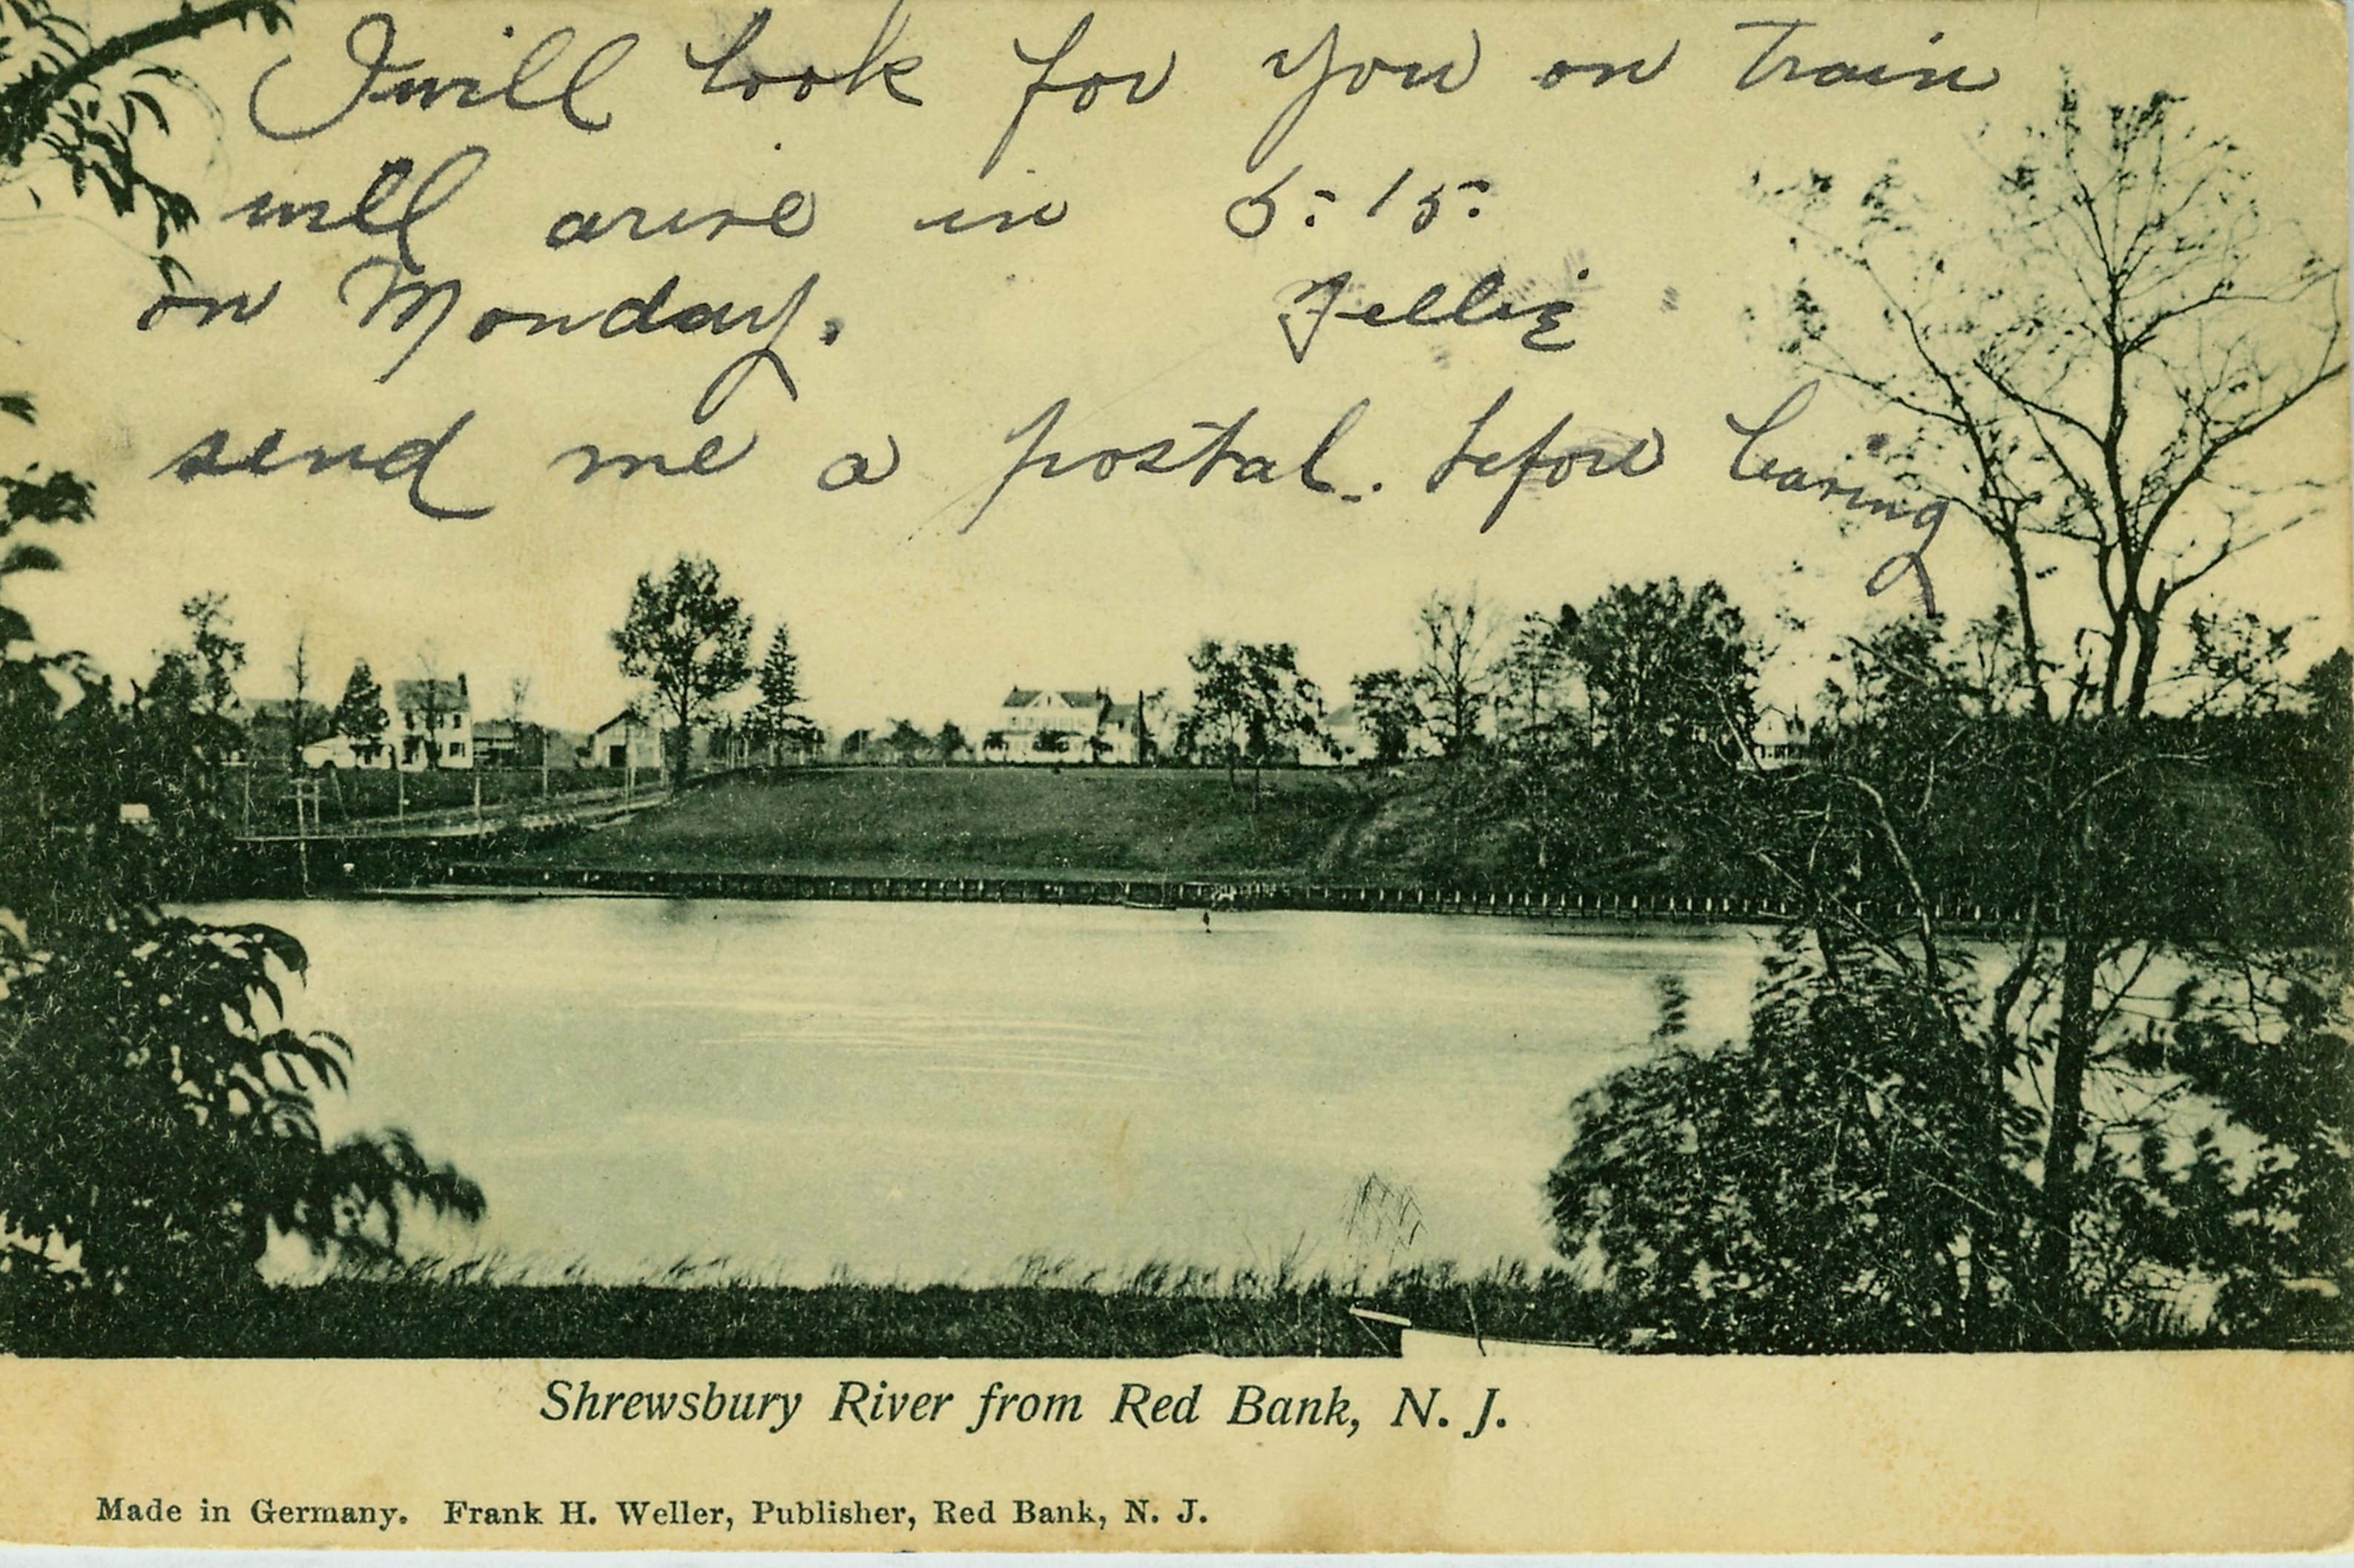 I will look for you on train
will arive in 5:15
on Monday.
send me a postal. before leaving
Shrewsbury River from Red Bank, N. J.
Made in Germany. Frank H. Weller, Publisher, Red Bank, N. J.